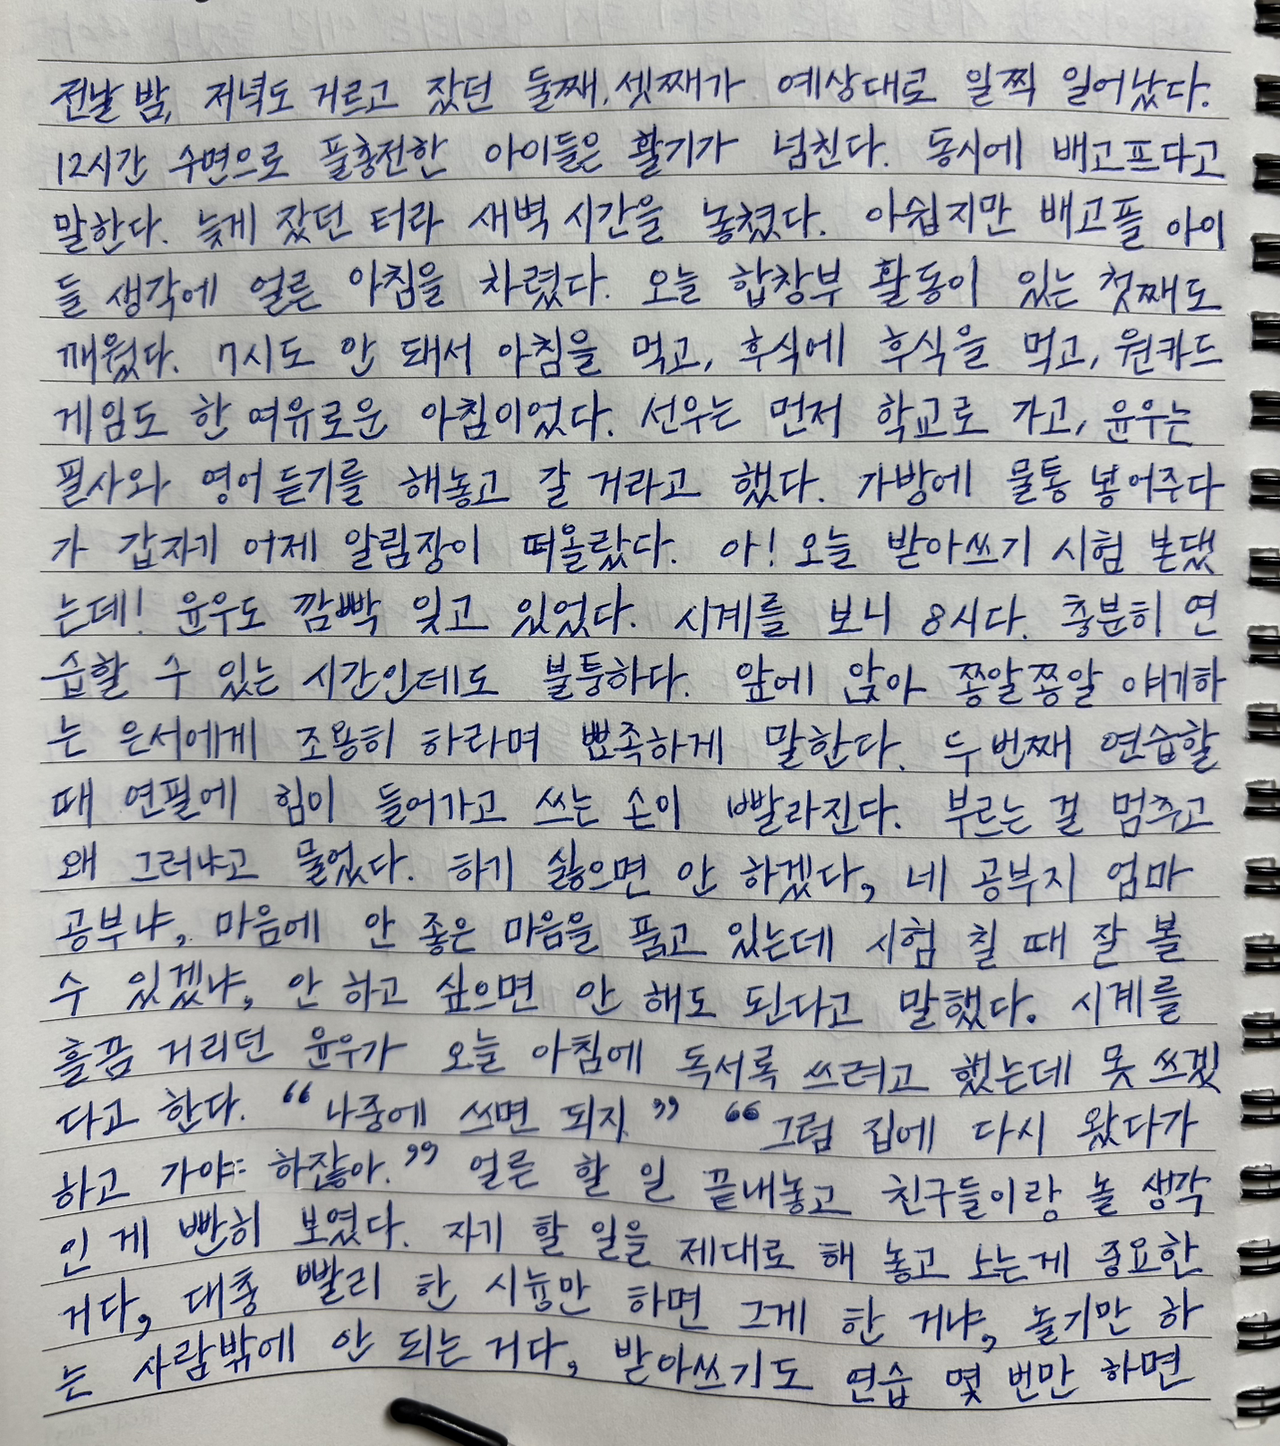 전날 밤, 저녁도 거르고 잤던 둘째, 셋째가 예상대로 일찍 일어났다.
12시간 수면으로 풀충전한 아이들은 활기가 넘친다. 동시에 배고프다고
말한다. 늦게 잤던 터라 새벽 시간을 놓쳤다. 아쉽지만 배고플 아이
들 생각에 얼른 아침을 차렸다. 오늘 합창부 활동이 있는 첫째도
깨웠다. 7시도 안 돼서 아침을 먹고, 후식에 후식을 먹고, 원카드
게임도 한 여유로운 아침이었다. 선우는 먼저 학교로 가고, 윤우는
필사와 영어 듣기를 해놓고 갈 거라고 했다. 가방에 물통 넣어주다
가 갑자기 어제 알림장이 떠올랐다. 아! 오늘 받아쓰기 시험 본댔
는데! 윤우도 깜빡 잊고 있었다. 시계를 보니 8시다. 충분히 연
습할 수 있는 시간인데도 불퉁하다. 앞에 앉아 쫑알쫑알 얘기하
는 은서에게 조용히 하라며 뾰족하게 말한다. 두번째 연습할
때 연필에 힘이 들어가고 쓰는 손이 빨라진다. 부르는 걸 멈추고
왜 그러냐고 물었다. 하기 싫으면 안 하겠다, 네 공부지 엄마
공부냐, 마음에 안 좋은 마음을 품고 있는데 시험 칠 때 잘 볼
수 있겠냐, 안 하고 싶으면 안 해도 된다고 말했다. 시계를
흘끔 거리던 윤우가 오늘 아침에 독서록 쓰려고 했는데 못 쓰겠
다고 한다. “나중에 쓰면 되지” “그럼 집에 다시 왔다가
하고 가야 하잖아.” 얼른 할 일 끝내놓고 친구들이랑 놀 생각
인 게 빤히 보였다. 자기 할 일을 제대로 해 놓고 노는게 중요한
거다, 대충 빨리 한 시늉만 하면 그게 한 거냐, 놀기만 하
는 사람밖에 안 되는 거다, 받아쓰기도 연습 몇 번만 하면